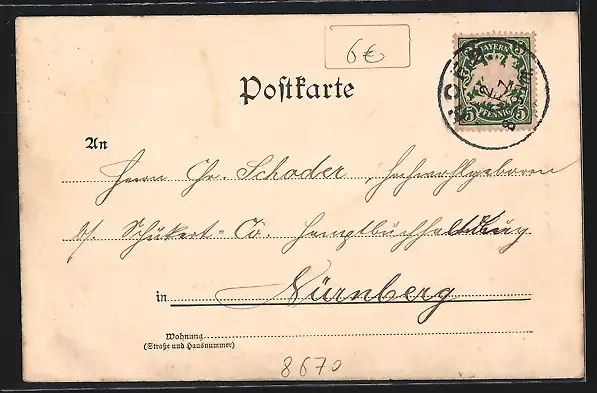 6€
BAYERN
5 PFENNIG 5
Postkarte
An
Herrn Chr. Schoder, Hochwohlgeboren
b/. Schukert-Co. Hauptbuchhaltung
in Nürnberg
Wohnung
(Straße und Hausnummer)
8670